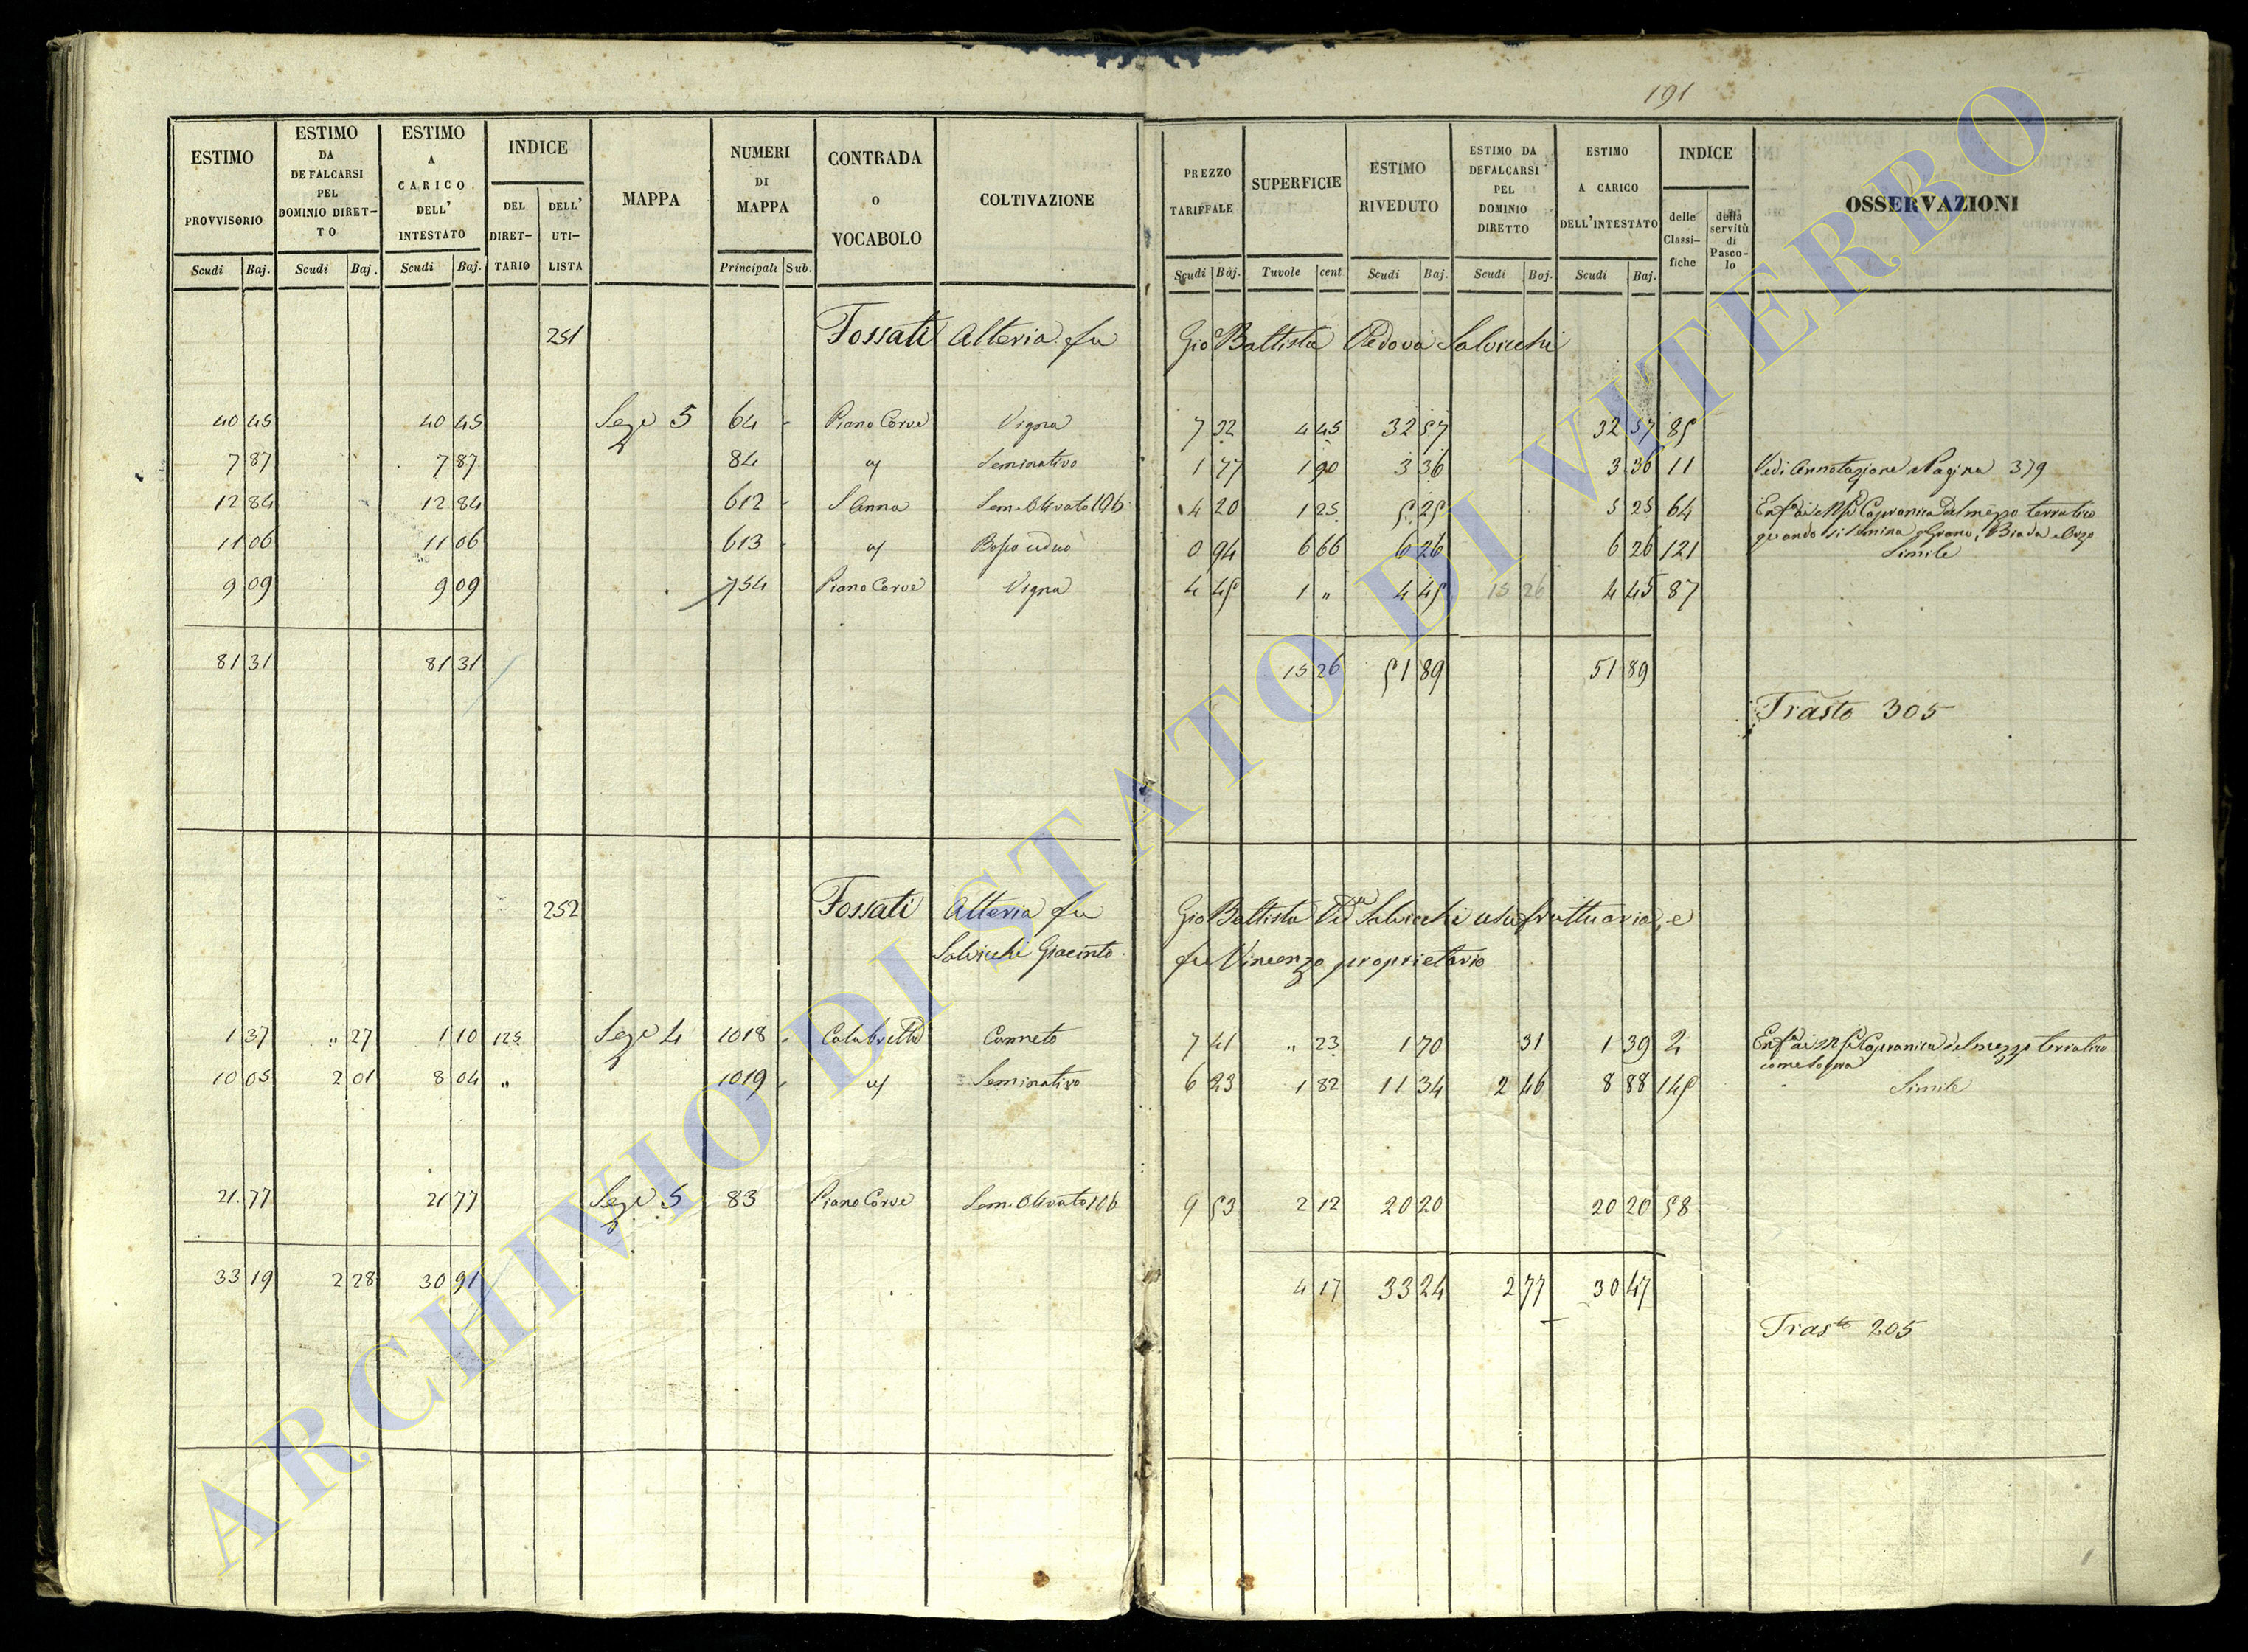 191
ESTIMO PROVVISORIO | ESTIMO DA DEFALCARSI PEL DOMINIO DIRET–TO | ESTIMO A CARICO DELL' INTESTATO | INDICE | MAPPA | NUMERI DI MAPPA | CONTRADA O VOCABOLO | COLTIVAZIONE | PREZZO TARIFFALE | SUPERFICIE | ESTIMO RIVEDUTO | ESTIMO DA DEFALCARSI PEL DOMINIO DIRETTO | ESTIMO A CARICO DELL'INTESTATO | INDICE | OSSERVAZIONI
DEL DIRET–TARIO | DELL' UTI–LISTA | delle Classi–fiche | della servitù di Pasco–lo
Scudi | Baj. | Scudi | Baj. | Scudi | Baj. | Principali | Sub. | Scudi | Baj. | Tavole | cent | Scudi | Baj. | Scudi | Baj. | Scudi | Baj.
251 Fossati Alteria fu Gio Battista Vedova Salvicchi
40 45 | 40 45 | Sez.e 5 | 64 | Piano Corve | Vigna | 7 32 | 4 45 | 32 57 | 32 57 | 85
7 87 | 7 87 | 84 | " | Seminativo | 1 77 | 1 90 | 3 36 | 3 36 | 11 | Vedi Annotazione a Pagina 379
12 84 | 12 84 | 612 | S Anna | Sem. Olivato | 4 20 | 1 25 | 5 25 | 5 25 | 64 | Capranica del mezzo terratico
quando si semina Grano, Biada e Orzo
11 06 | 11 06 | 613 | " | Bosco ceduo | 0 94 | 6 66 | 6 26 | 6 26 | 121 | Simile
9 09 | 9 09 | 754 | Piano Corve | Vigna | 4 45 | 1 " | 4 45 | 15 26 | 4 45 | 87
81 31 | 81 31 | 15 26 | 51 89 | 51 89
Trasto 305
252 Fossati Alteria fu Gio Battista Ved.a Salvicchi usufruttuaria, e
Salvicchi Giacinto fu Vincenzo proprietario
1 37 | " 27 | 1 10 | 125 | Sez.e 4 | 1018 | Calabretta | Canneto | 7 41 | " 23 | 1 70 | 31 | 1 39 | 2 | Capranica del mezzo terratico
come sopra
10 05 | 2 01 | 8 04 | " | 1019 | " | Seminativo | 6 23 | 1 82 | 11 34 | 2 46 | 8 88 | 145 | Simile
21 77 | 21 77 | Sez.e 5 | 83 | Piano Corve | Sem. Olivato | 9 53 | 2 12 | 20 20 | 20 20 | 58
33 19 | 2 28 | 30 91 | 4 17 | 33 24 | 2 77 | 30 47
Trasto 205
ARCHIVIO DI STATO DI VITERBO